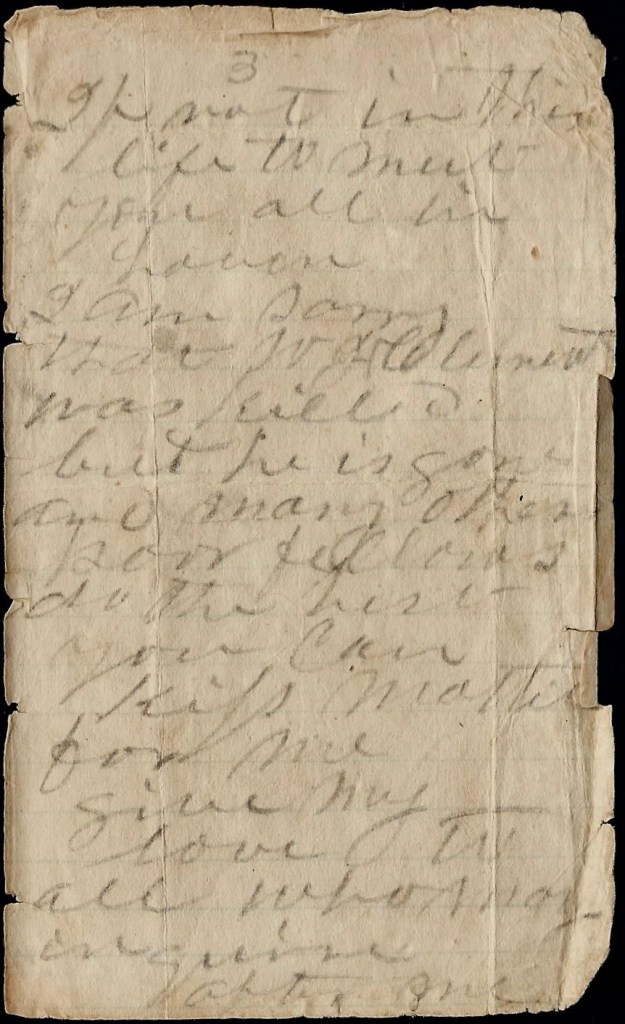 3
If not in this
life to meet
you all in
haven
I am sorry
that
was killed
but he is gone
and many other
poor fellows
do the best
you can
kiss Mattie
for me
give my
love to
all who may
inquire
after me